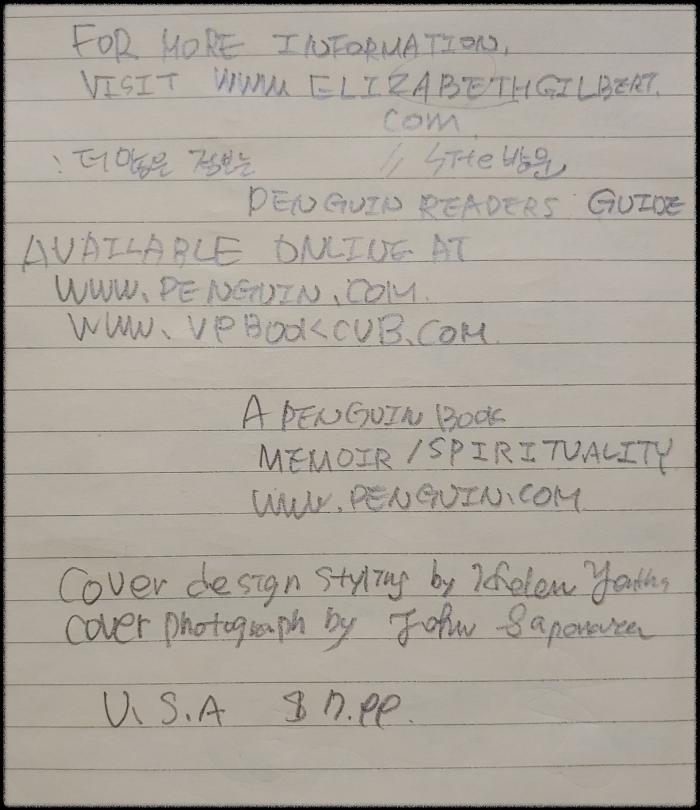 FOR MORE INFORMATION,
VISIT WWW ELIZABETHGILBERT.
COM
: 더 많은 정보는 // 방문
PENGUIN READERS GUIDE
AVAILABLE ONLINE AT
WWW. PENGUIN.COM.
WWW. VPBOOKCUB.COM
A PENGUIN BOOK
MEMOIR / SPIRITUALITY
WWW. PENGUIN.COM
Cover design styling by Helen
Cover photograph by John
U.S.A $